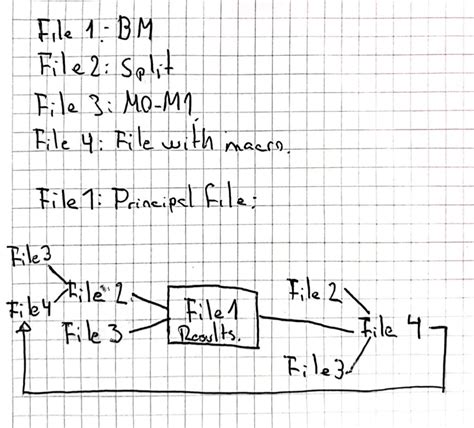 File 1: BM
File 2: Split
File 3: M0-M1
File 4: File with macro.
File 1: Principal file:
File 3
File 4
File 2
File 3
File 1
Results.
File 2
File 4
File 3